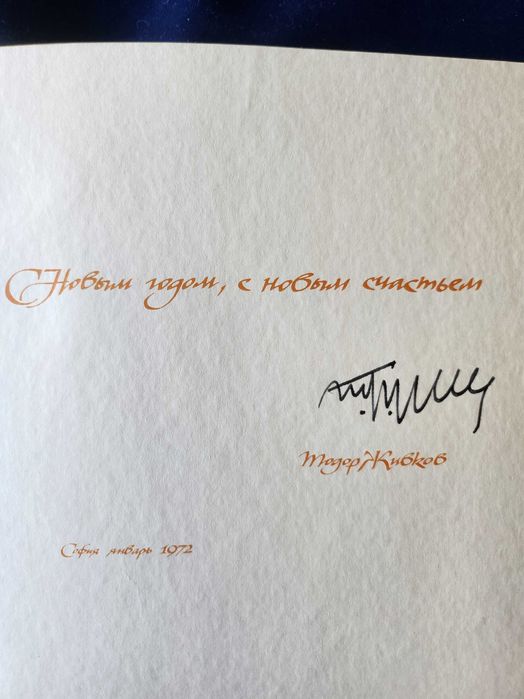 С Новым годом, с новым счастьем
Тодор Живков
София январь 1972